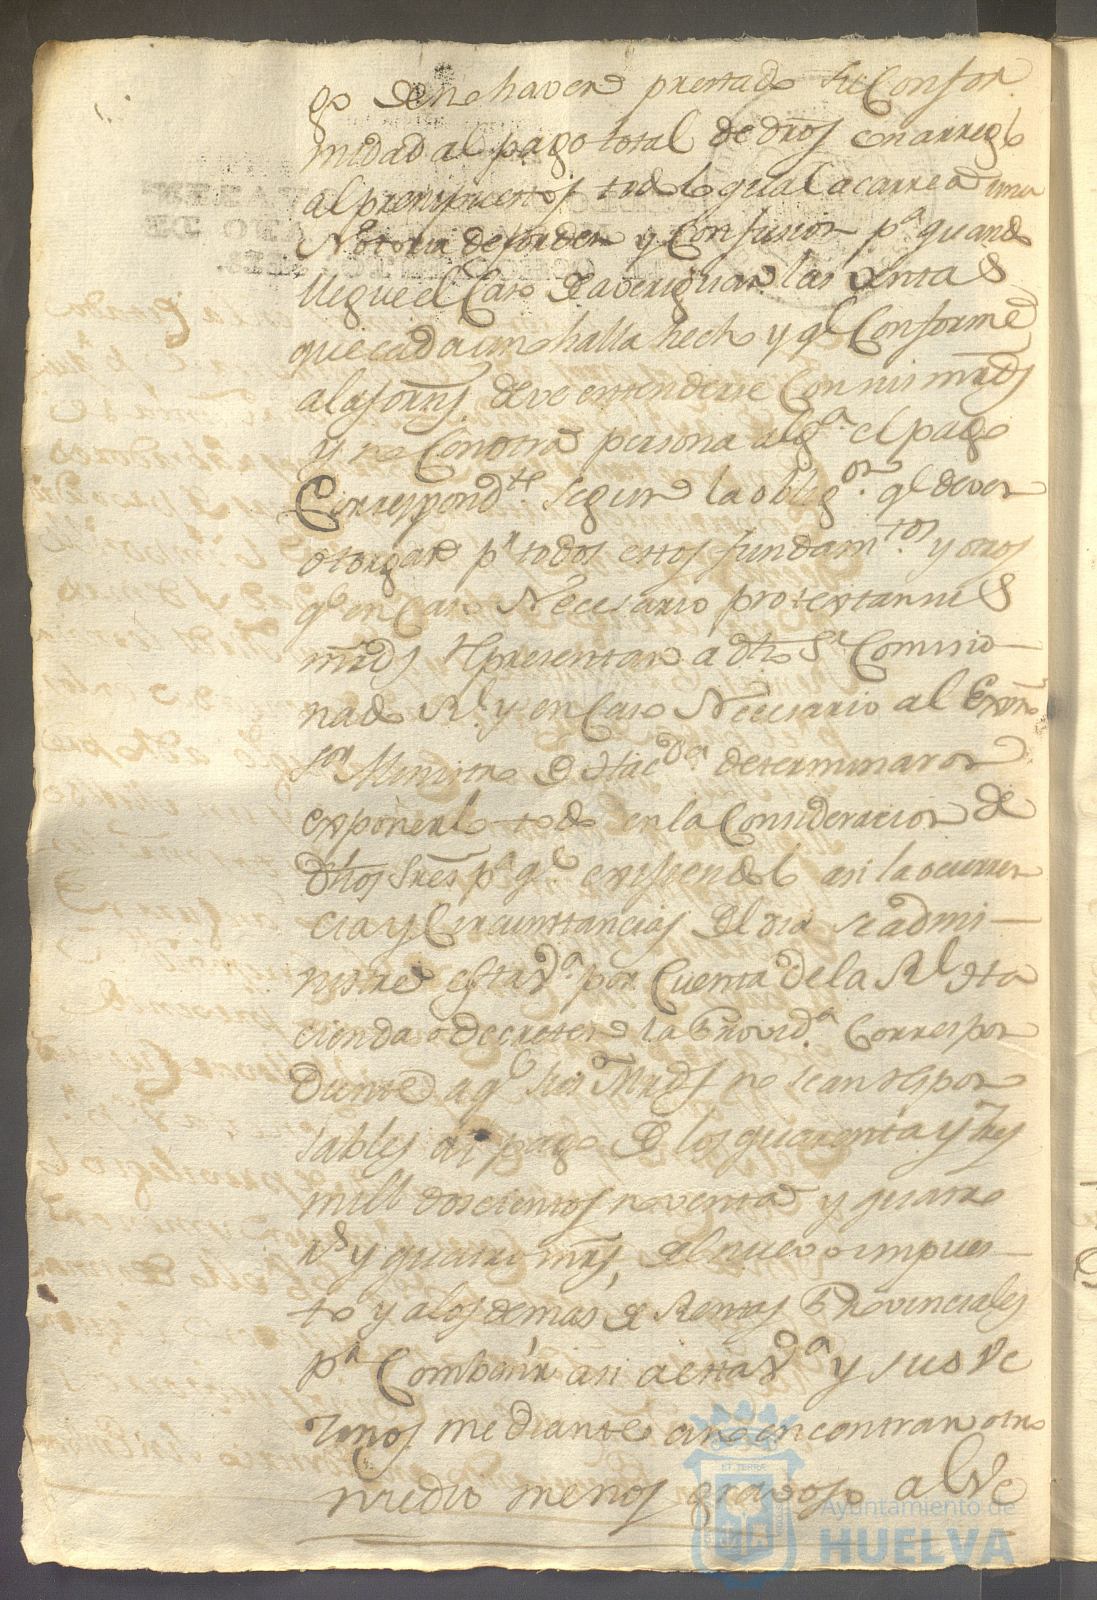 go de no haver prestado su Confor
midad al pago total de dros en arreglo
al presupuesto, todo lo qual acarrea una
Notoria desorden y Confusion pª quando
llegue el Caso de averiguar las ventas
que cada uno halla hecho y qe Conforme
alas ornˢ. deve entenderse Con sus mrdˢ
y no Con otra persona algª. el pago
Correspondte. segun la obligon. qe deven
otorgar pr todos estos fundamtos. y otros
qe en Caso Necesario protextan sus
mrdˢ Representar a dho Sr Comisio-
nado Rl. y en Caso Necesario al Exmo
Sor Ministro de Hacda. determinaron
exponerlo todo en la Consideracion de
dhos Sres pª qe. expsiendolo asi la ocurren
cia y Circunstancias del dia se admi-
nistre esta Vª. por Cuenta de la Rl Ha
cienda o decreten la Providª. Correspon
diente a qe sus Mrdˢ no sean Respon
sables al pago de los quarenta y tres
mill doscientos noventa y quatro
rˢ y quatro mrs, del nuevo impues-
to y a los demas de Rentas Provinciales
pª Combenir asi a esta Vª y sus Ve
zinos mediante a no encontrar otro
medio menos gravoso al Ve
Ayuntamiento de
HUELVA